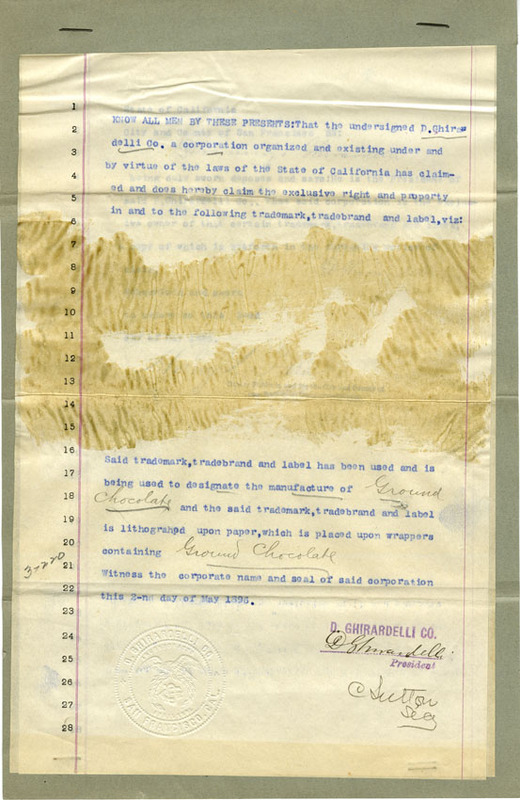 1
KNOW ALL MEN BY THESE PRESENTS:That the undersigned D.Ghirar
2
delli Co. a corporation organized and existing under and
3
by virtue of the laws of the State of California has claim-
4
ed and does hereby claim the exclusive right and property
5
in and to the following trademark,tradebrand and label,viz:
6
7
8
9
10
11
12
13
14
15
16
Said trademark,tradebrand and label has been used and is
17
being used to designate the manufacture of Ground
18
Chocolate and the said trademark,tradebrand and label
19
is lithograhed upon paper,which is placed upon wrappers
20
containing Ground Chocolate
3-220
21
Witness the corporate name and seal of said corporation
22
this 2-nd day of May 1896.
23
24
D. GHIRARDELLI CO.
D Ghirardelli
25
President
26
C Sutton
27
Secy
28
GHIRARDELLI CO.
SAN FRANCISCO, CAL.